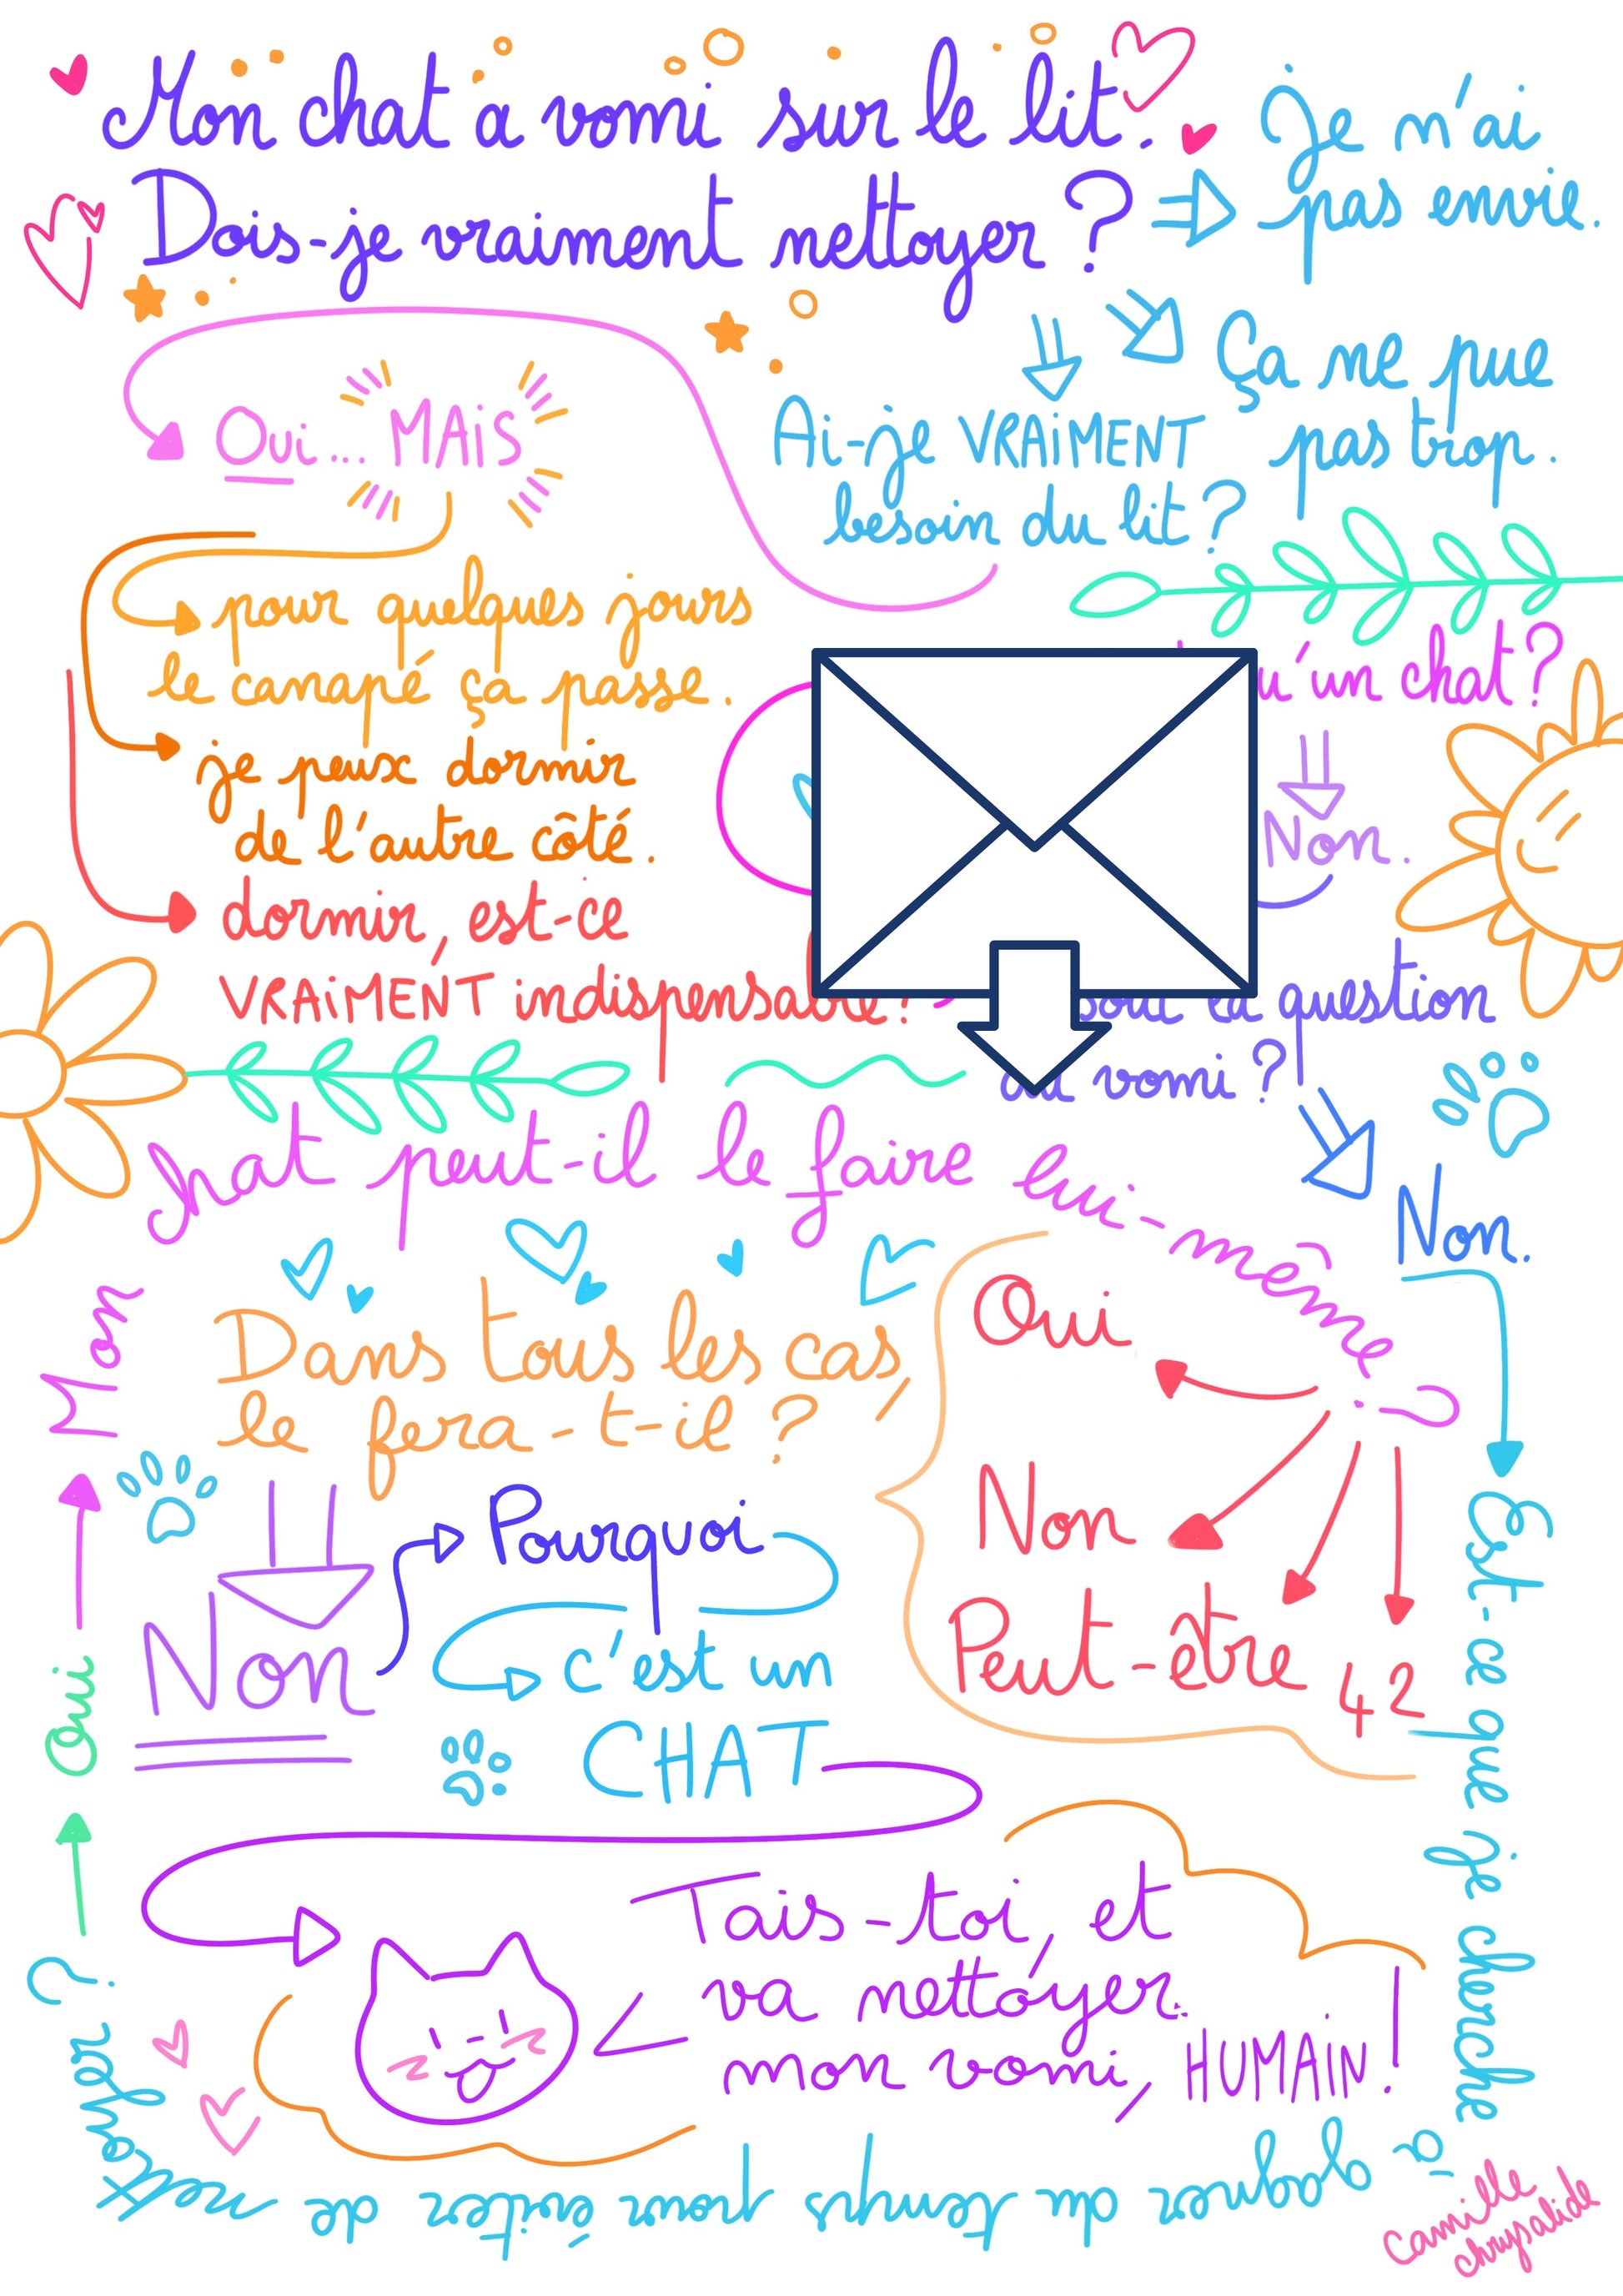 Mon chat a vomi sur le lit.
Dois-je vraiment nettoyer ?
je m'ai
pas envie.
Ça ne pue
pas trop.
Ai-je VRAIMENT
besoin du lit ?
Oui... MAIS
pour quelques jours
le canapé ça passe.
je peux dormir
de l'autre côté.
dormir, est-ce
VRAIMENT indispensable ?
un chat ?
Non.
question
vomi ?
Non.
Est-ce que je cherche
à gagner du temps pour éviter de
nettoyer ?
Oui
Mon
chat peut-il le faire lui-même ?
Oui
Non
Peut-être
42
Dans tous les cas,
le fera-t-il ?
Non
Pourquoi
c'est un
CHAT
Tais-toi, et
va nettoyer
mon vomi, HUMAIN !
Camille
chrysalide